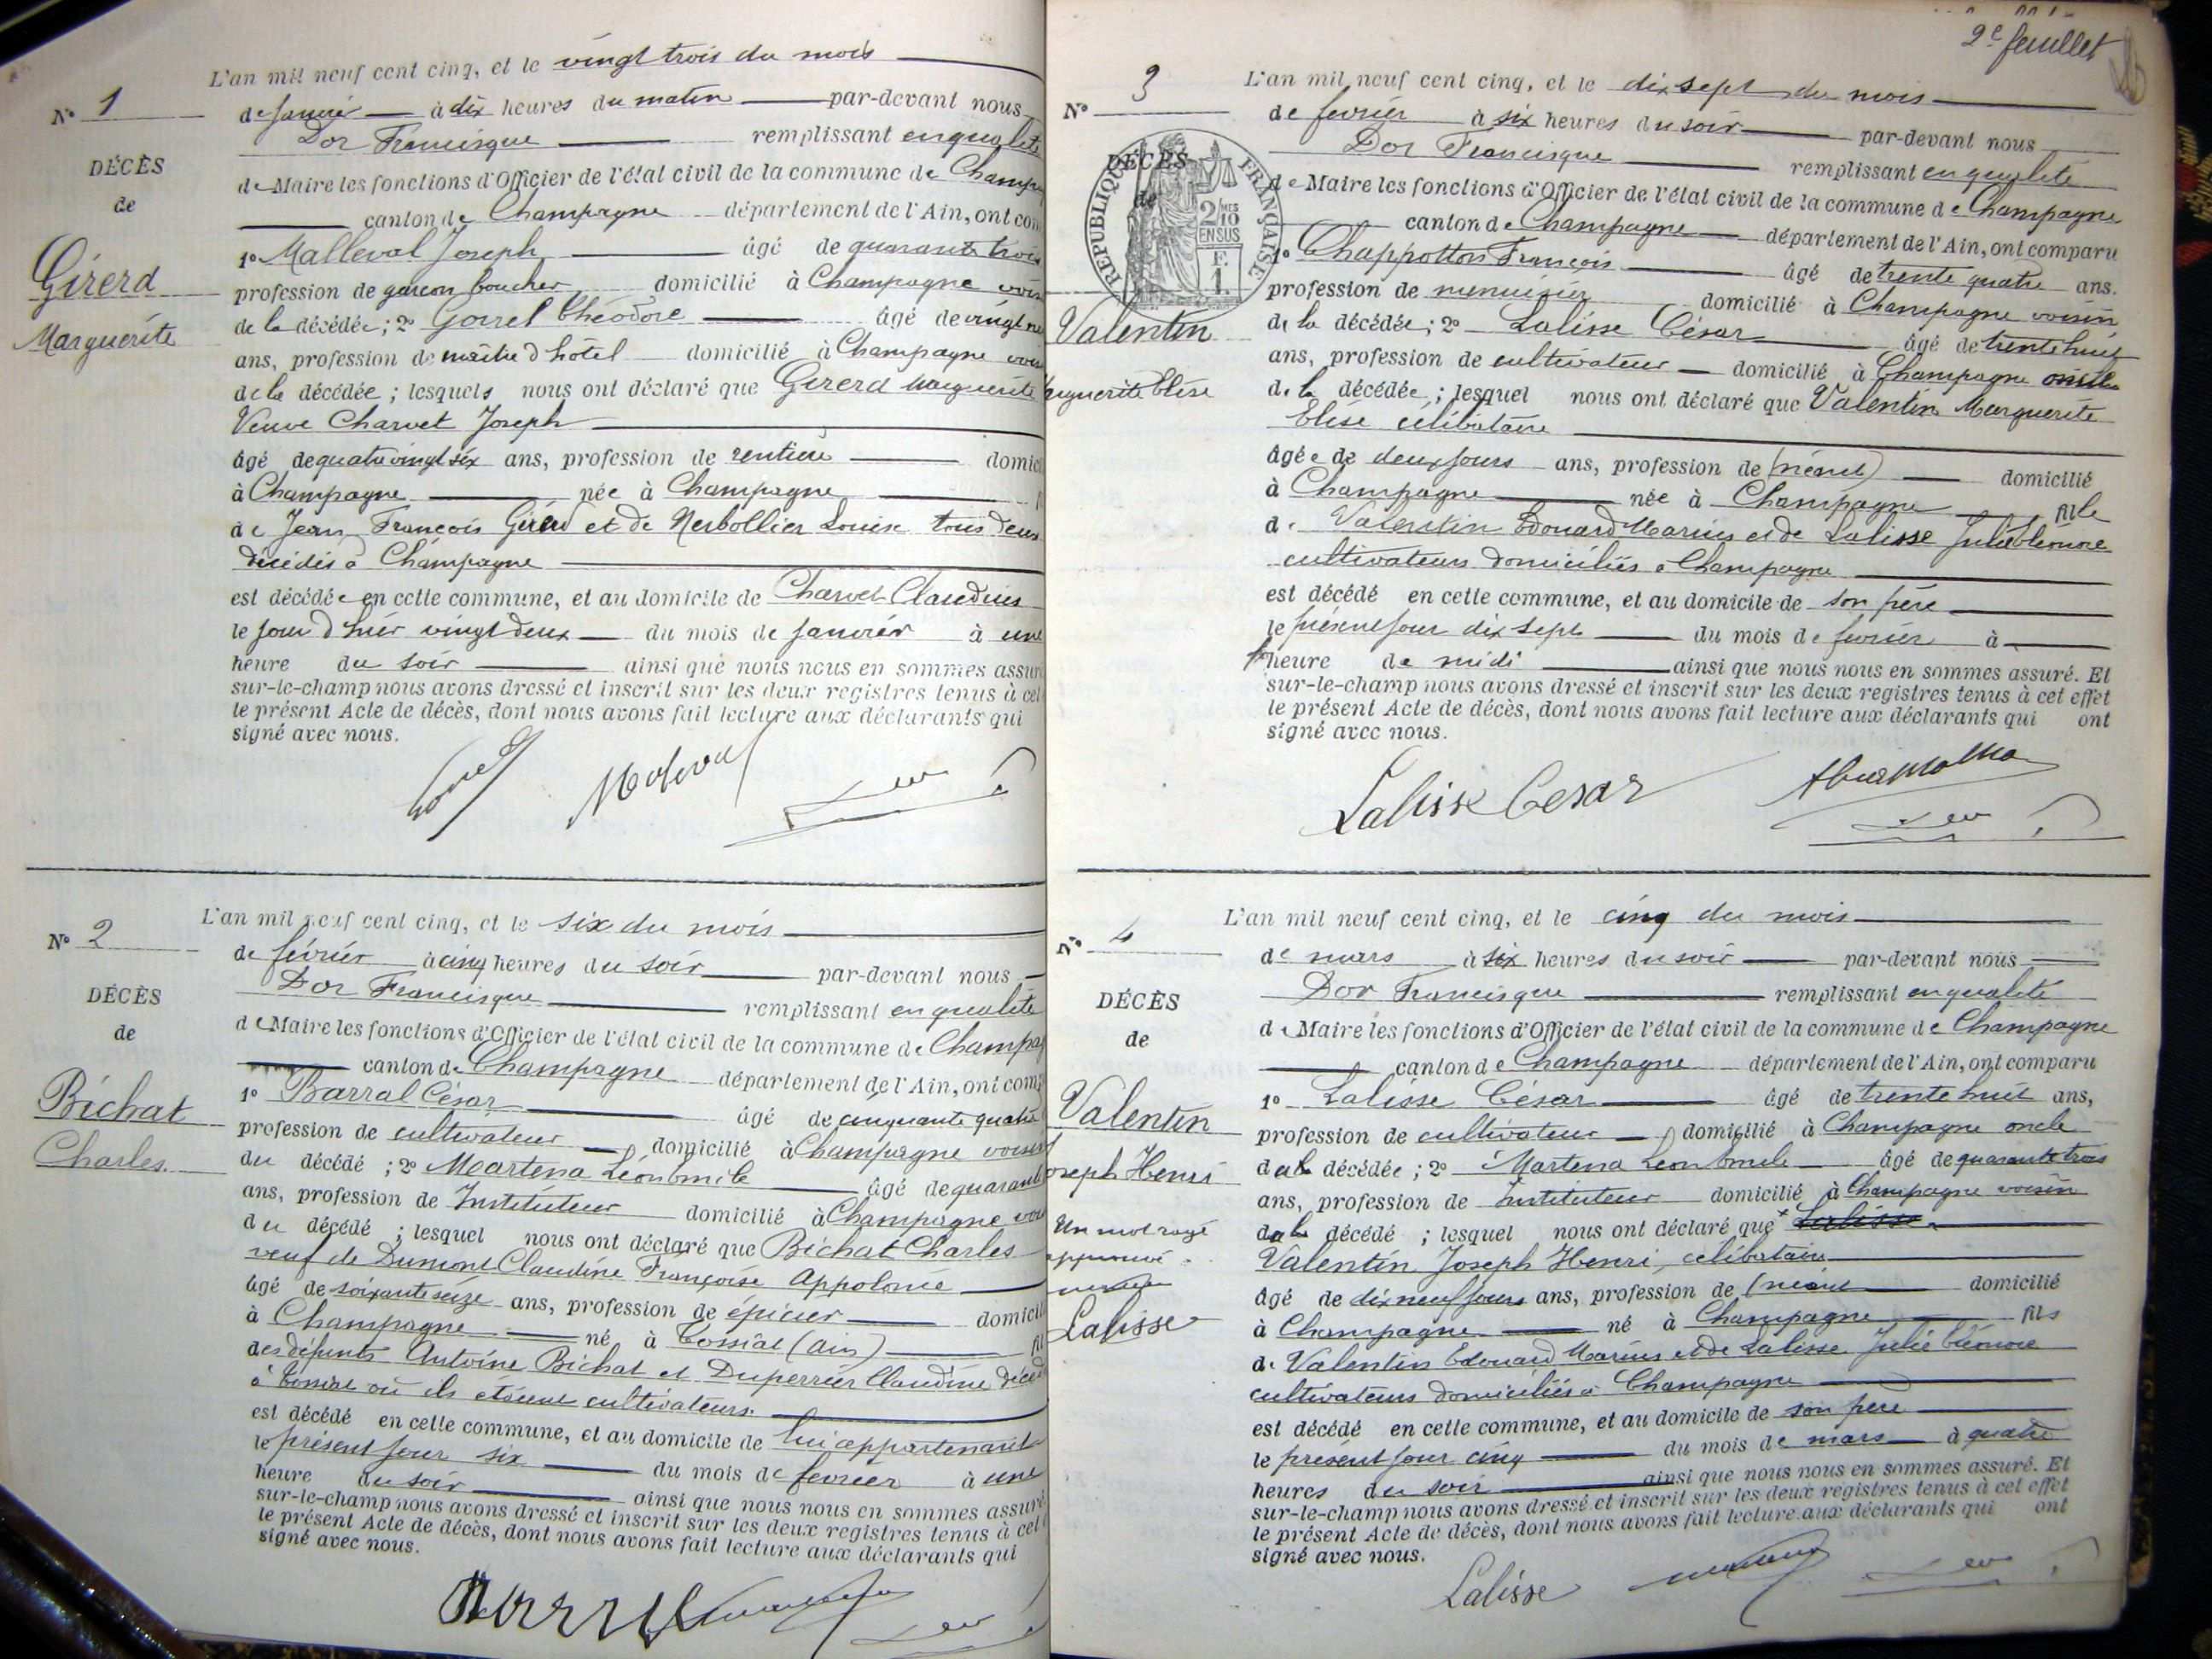 L'an mil neuf cent cinq, et le vingt trois du mois
N° 1
de Janvier à dix heures du matin par-devant nous
Dor Francisque remplissant en qualité
DÉCÈS
de Maire les fonctions d'Officier de l'état civil de la commune de Champ
de
canton de Champagne département de l'Ain, ont com
1° Malleval Joseph âgé de quarante trois
Girerd
profession de garcon boucher domicilié à Champagne vois
Marguerite
de la décédée ; 2° Gorrel Théodore âgé de vingt ne
ans, profession de maître d'hôtel domicilié à Champagne vois
de la décédée ; lesquels nous ont déclaré que Girerd Marguerite
Veuve Charvet Joseph
âgé de quatre vingt six ans, profession de rentière domici
à Champagne née à Champagne
de Jean François Girerd et de Nerbollier Louise tous deux
décédés à Champagne
est décédée en cette commune, et au domicile de Charvet Claudius
le jour d'hier vingt deux du mois de Janvier à une
heure du soir ainsi que nous nous en sommes assur
sur-le-champ nous avons dressé et inscrit sur les deux registres tenus à cet
le présent Acte de décès, dont nous avons fait lecture aux déclarants qui
signé avec nous.
L'an mil neuf cent cinq, et le six du mois
N° 2
de février à cinq heures du soir par-devant nous
Dor Francisque remplissant en qualité
DÉCÈS
de Maire les fonctions d'Officier de l'état civil de la commune de Champag
de
canton de Champagne département de l'Ain, ont comp
1° Barral César âgé de cinquante quatre
Bichat
profession de cultivateur domicilié à Champagne voisin
Charles
du décédé ; 2° Martena Léon Emile âgé de quarante
ans, profession de Instituteur domicilié à Champagne vois
du décédé ; lesquel nous ont déclaré que Bichat Charles
veuf de Dumont Claudine Françoise Appolonie
âgé de soixante seize ans, profession de épicier domicili
à Champagne né à Cossiat (Ain) fil
des défunts Antoine Bichat et Duperrier Claudine décéd
à où ils étaient cultivateurs.
est décédé en cette commune, et au domicile de lui appartenant
le présent jour six du mois de février à une
heure du soir ainsi que nous nous en sommes assuré
sur-le-champ nous avons dressé et inscrit sur les deux registres tenus à cet
le présent Acte de décès, dont nous avons fait lecture aux déclarants qui
signé avec nous.
2e feuillet
L'an mil neuf cent cinq, et le dix sept du mois
N° 3
de février à six heures du soir par-devant nous
Dor Francisque remplissant en qualité
DÉCÈS
de
RÉPUBLIQUE FRANÇAISE
2/10 MES
EN SUS
F.
1.
de Maire les fonctions d'Officier de l'état civil de la commune de Champagne
canton de Champagne département de l'Ain, ont comparu
1° Chappotton François âgé de trente quatre ans.
profession de menuisier domicilié à Champagne voisin
Valentin
de la décédée ; 2° Lalisse César âgé de trente huit
ans, profession de cultivateur domicilié à Champagne oncle
arguerite Elise
de la décédée ; lesquel nous ont déclaré que Valentin Marguerite
Elise célibataire
âgée de deux jours ans, profession de (néant) domicilié
à Champagne née à Champagne fille
de Valentin Edouard Marius et de Lalisse Julie Eléonore
cultivateurs domiciliés à Champagne
est décédé en cette commune, et au domicile de son père
le présent jour dix sept du mois de février à
heure de midi ainsi que nous nous en sommes assuré. Et
sur-le-champ nous avons dressé et inscrit sur les deux registres tenus à cet effet
le présent Acte de décès, dont nous avons fait lecture aux déclarants qui ont
signé avec nous.
Lalisse Cesar
L'an mil neuf cent cinq, et le cinq du mois
N° 4
de mars à six heures du soir par-devant nous
Dor Francisque remplissant en qualité
DÉCÈS
de Maire les fonctions d'Officier de l'état civil de la commune de Champagne
de
canton de Champagne département de l'Ain, ont comparu
1° Lalisse César âgé de trente huit ans,
Valentin
profession de cultivateur domicilié à Champagne oncle
oseph Henri
du décédée ; 2° Martena Léon Emile âgé de quarante trois
ans, profession de Instituteur domicilié à Champagne voisin
Un mot rayé
du décédé ; lesquel nous ont déclaré que Lalisse
approuvé
Valentin Joseph Henri, célibataire
âgé de dix neuf jours ans, profession de (néant domicilié
Lalisse
à Champagne né à Champagne fils
de Valentin Edouard Marius et de Lalisse Julie Eléonore
cultivateurs domiciliés à Champagne
est décédé en cette commune, et au domicile de son père
le présent jour cinq du mois de mars à quatre
heures du soir ainsi que nous nous en sommes assuré. Et
sur-le-champ nous avons dressé et inscrit sur les deux registres tenus à cet effet
le présent Acte de décès, dont nous avons fait lecture aux déclarants qui ont
signé avec nous.
Lalisse